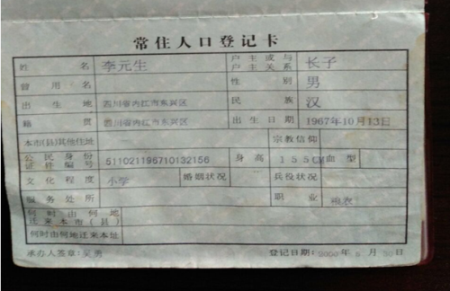 常住人口登记卡
姓名 李元生 户主或与户主关系 长子
曾用名 性别 男
出生地 四川省内江市东兴区 民族 汉
籍贯 四川省内江市东兴区 出生日期 1967年10月13日
本市(县)其他住址 宗教信仰
公民身份证件编号 511021196710132156 身高 155CM 血型
文化程度 小学 婚姻状况 兵役状况
服务处所 职业
何时由何地迁来本市(县)
何时由何地迁来本址
承办人签章: 登记日期: 年 月